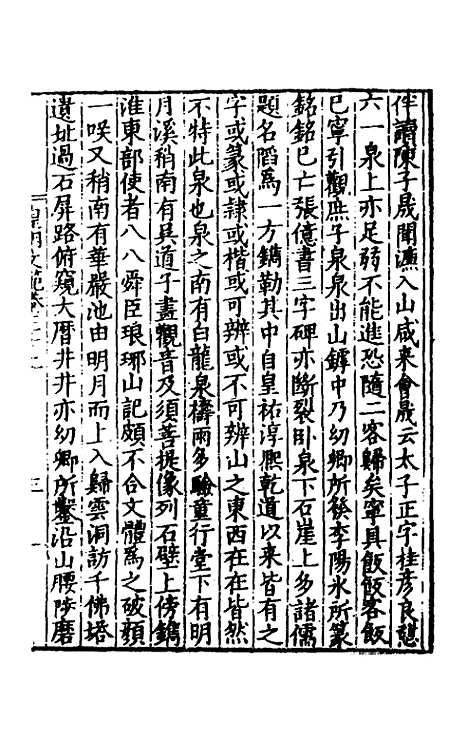 伴讀陳子晟聞濂入山咸来會晟云太子正字桂彥良憇
六一泉上亦足弱不能進恐隨二客歸矣寧具飯飯客飯
已寧引觀庶子泉泉出山罅中乃幼卿所發李陽氷所篆
銘銘已亡張億書三字碑亦斷裂卧泉下石崖上多諸儒
題名䧟爲一方鐫勒其中自皇祐淳熈乾道以来皆有之
字或篆或隷或楷或可辨或不可辨山之東西在在皆然
不特此泉也泉之南有白龍泉禱雨多驗童行堂下有明
月溪稍南有吳道子畫觀音及須菩提像列石壁上傍鐫
淮東部使者八八舜臣琅琊山記頗不合文體爲之破顏
一咲又稍南有華嚴池由明月而上入歸雲洞訪千佛塔
遺址過石屏路俯窺大曆井井亦幼卿所鑿沿山腰陟磨
皇明文範卷二十九
三